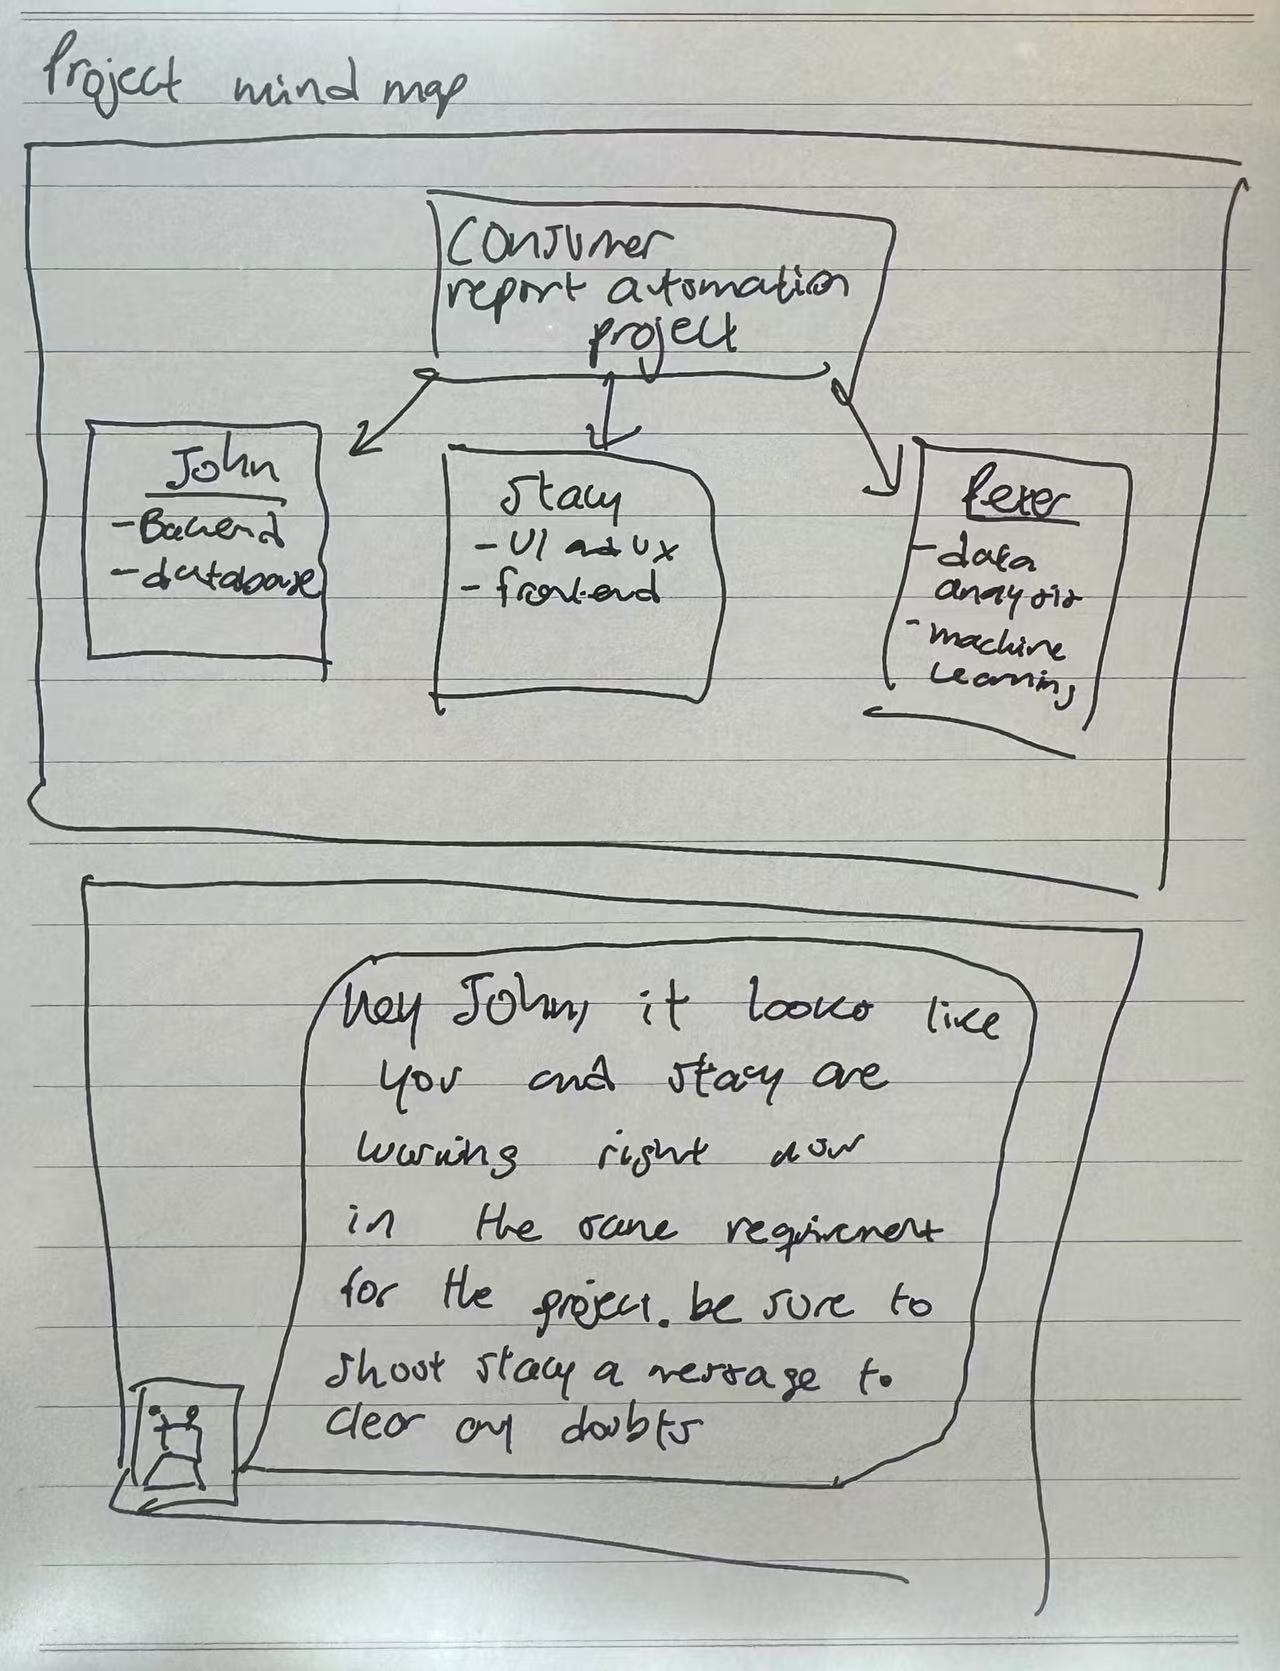 Project mind map
Consumer
report automation
project
John
- Backend
- database
Stacy
- UI and UX
- frontend
Peter
- data
analysis
- machine
Learning
Hey John, it looks like
you and stacy are
working right now
in the same requirement
for the project. be sure to
shoot stacy a message to
clear any doubts